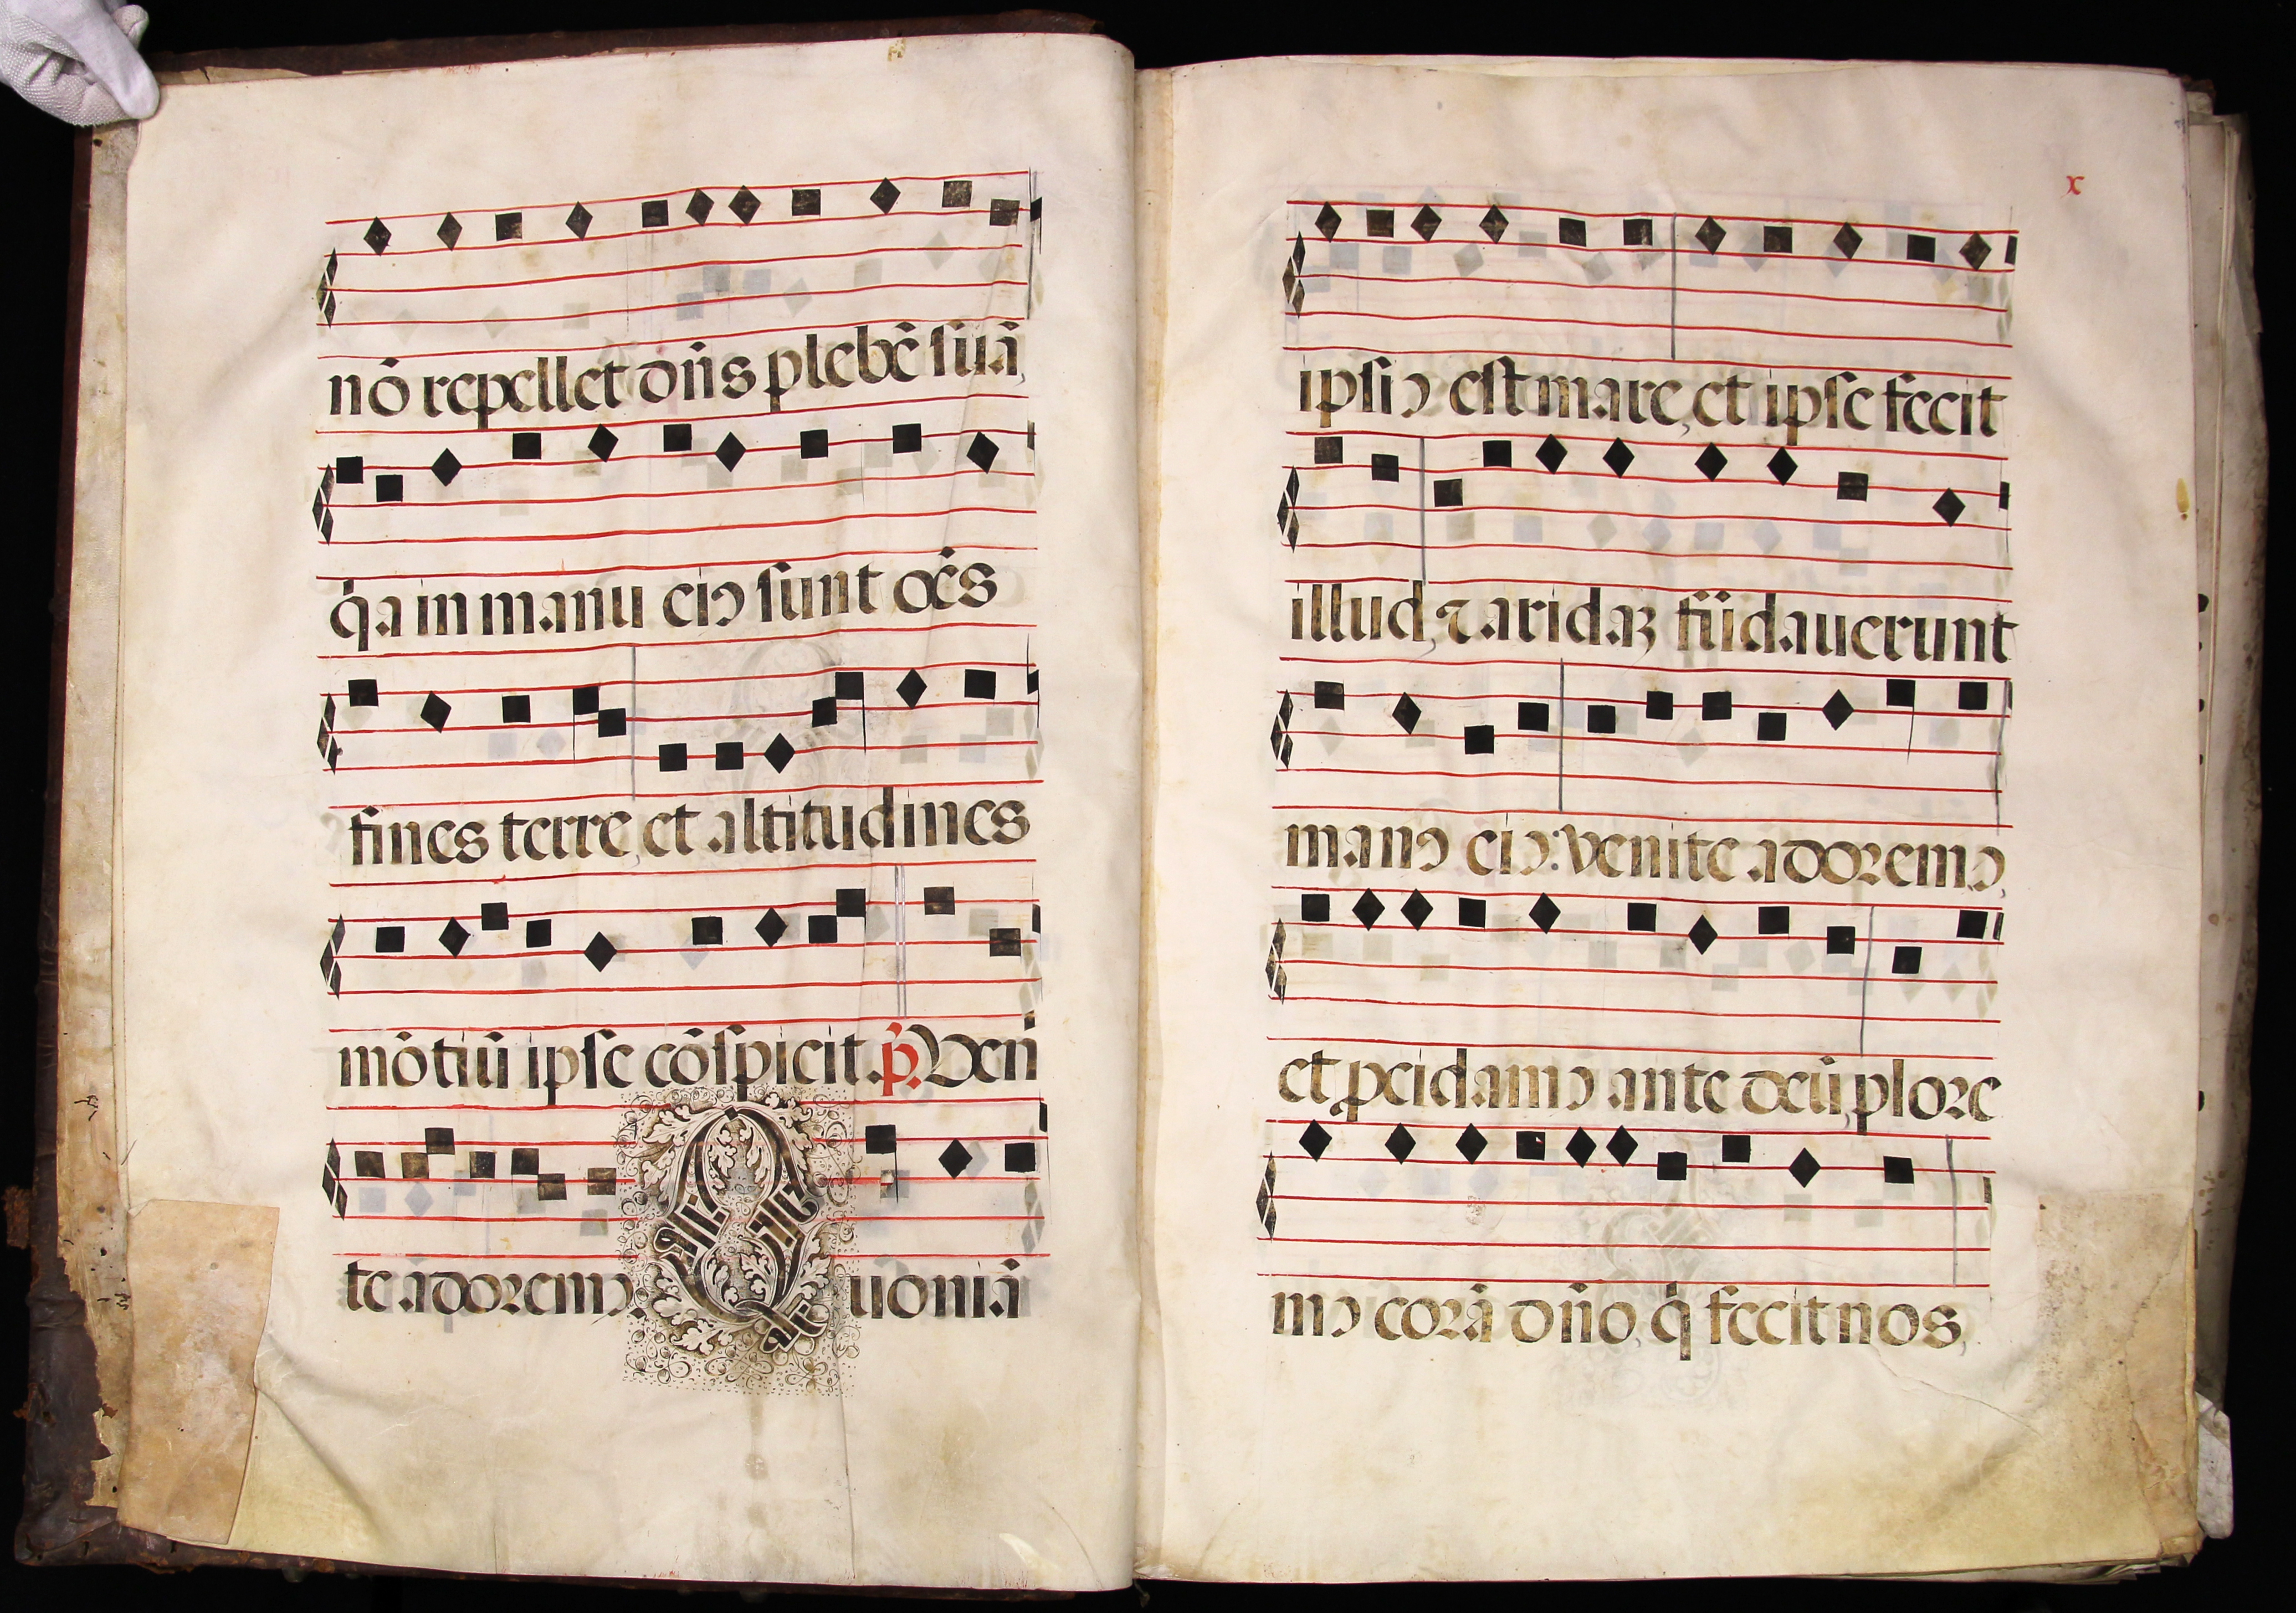 nō repellet dñs plebē suā,
q̇a in manu eiꝯ sunt oēs
fines terre, et altitudines
mōtiū ipse cōspicit. p̃. Ven
te adoremꝯ. Quoniā
x
ipsiꝯ est mare, et ipse fecit
illud, ⁊ aridaꝫ fūdauerunt
manꝯ eiꝯ: venite adoremꝯ,
et ꝓcidamꝯ ante deū, plore
mꝯ corā dño, q̇ fecit nos,